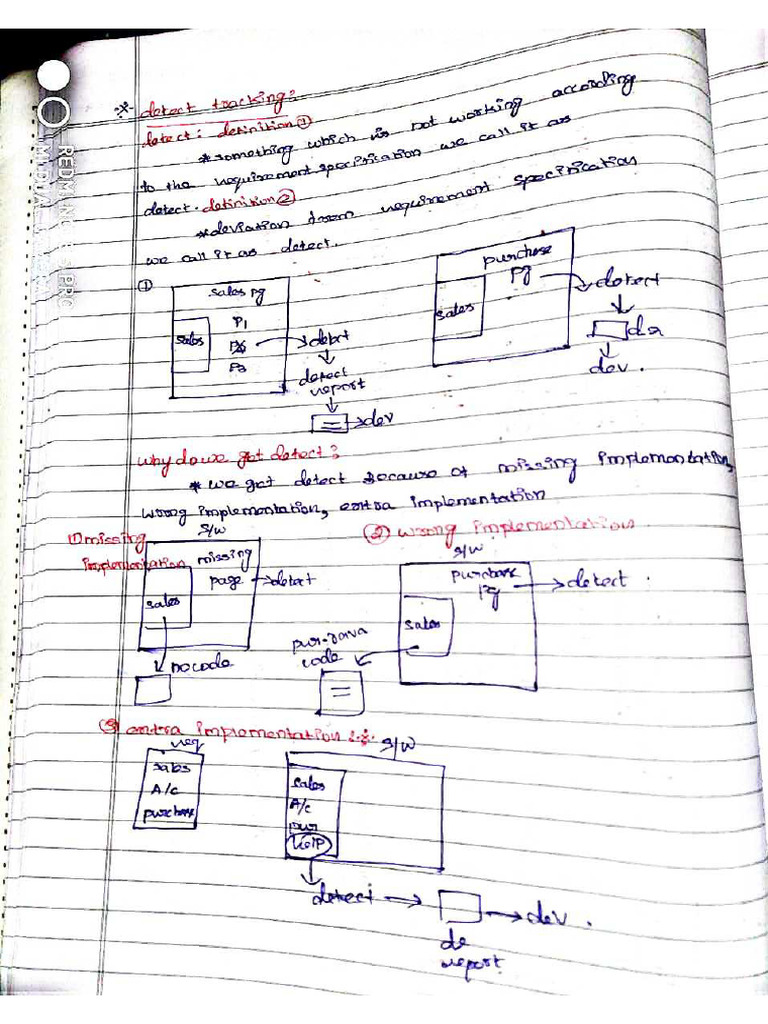 defect tracking:
defect: definition ①
* something which is not working according
to the requirement specification we call it as
defect. definition ②
* deviation from requirement specification
we call it as defect.
①
sales pg
sales
P1
P2
P3
defect
defect
report
dev
purchase
pg
sales
defect
dev.
Why do we get defect?
* we get defect because of missing implementation,
wrong implementation, extra implementation
① missing
implementation
S/W
missing
page
defect
sales
no code
② wrong implementation
S/W
purchase
pg
defect.
sales
pur-java
code
③ extra implementation:
req
sales
A/c
purchase
S/W
sales
A/c
pur
help
defect
de
report
dev.
REDMI